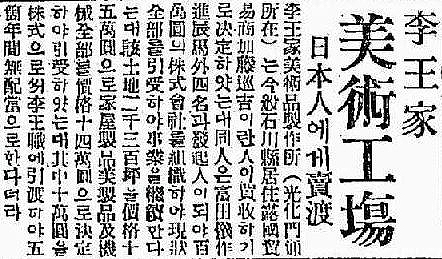 李王家
美術工塲
日本人에게賣渡
李王家美術品製作所（光化門通
所在）는今般石川縣居住露國貿
易商加藤巡吉이란人이買收하기
로決定하얏는대同人은富田儀作
進辰馬外四名과發起人이되야百
萬圓의株式會社를組織하야現狀
全部를引受하야事業을繼續한다
는대該土地二千三百坪을價格十
五萬圓으로家屋製品及製品及機
械全部를價格十四萬圓으로決定
하야引受하얏는대其中十萬圓을
株式으로李王職에引渡하야五
個年間無配當으로한다더라